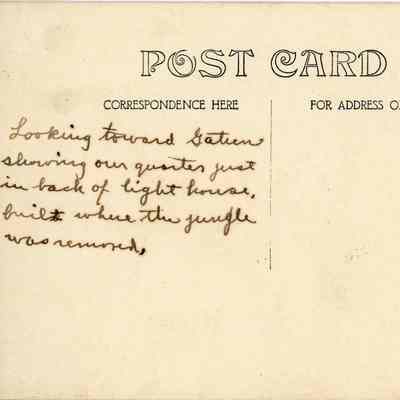 POST CARD
CORRESPONDENCE HERE
FOR ADDRESS O
Looking toward Gatun
showing our quarters just
in back of light house,
built where the jungle
was removed,